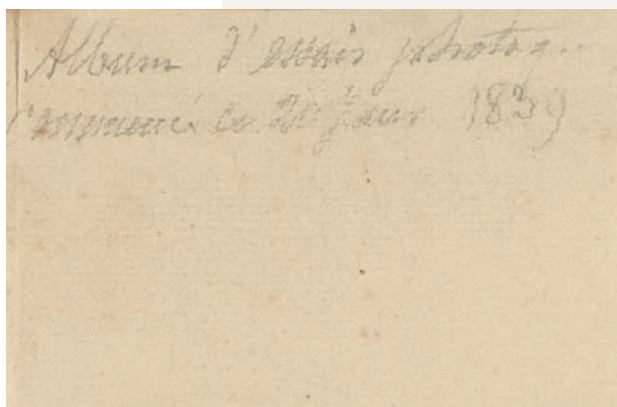 Album d'essais photog..
Commencé ce 20 Janv 1839